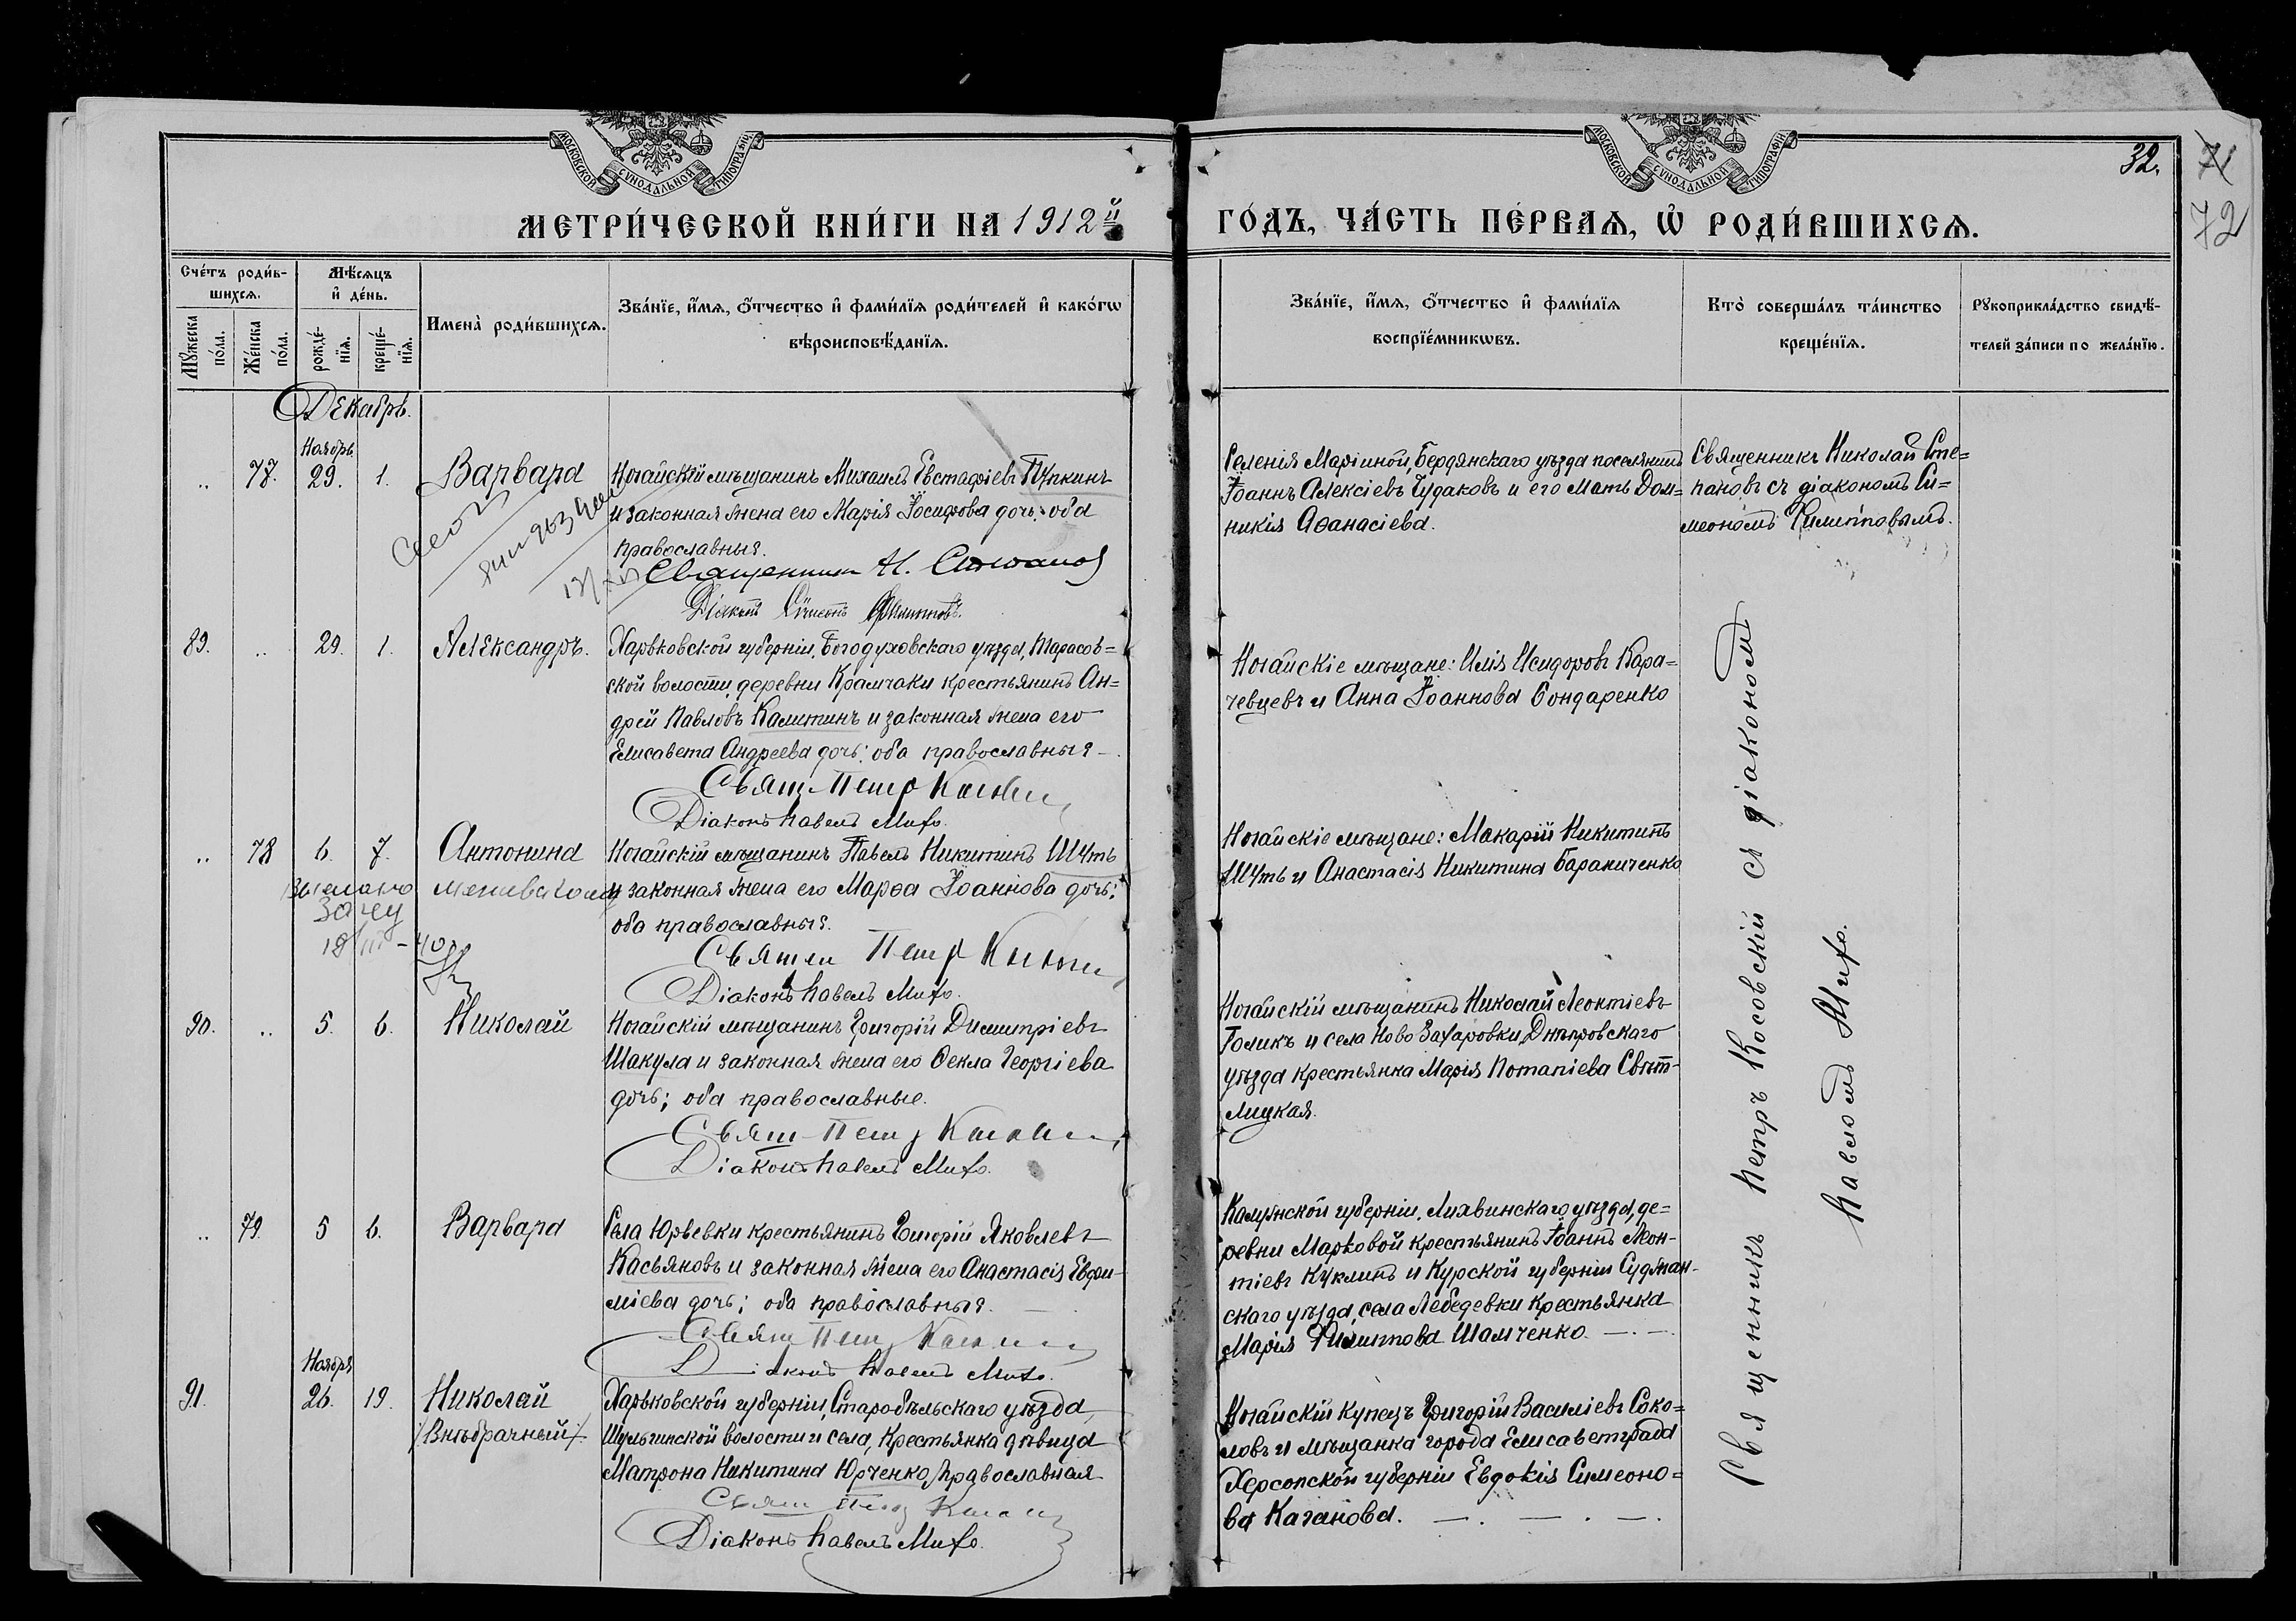 МОСКОВСКОЙ СѴНОДАЛЬНОЙ ТИПОГРАФІИ.
МОСКОВСКОЙ СѴНОДАЛЬНОЙ ТИПОГРАФІИ.
32.
71
72
МЕТРИ́ЧЕСКОЙ КНИ́ГИ НА 1912й ГО́ДЪ, ЧА́СТЬ ПЕ́РВАѦ, Ѽ РОДИ́ВШИХСѦ.
Сче́тъ роди́в-
шихсѧ.
Мꙋ́жеска по́ла.
Же́нска по́ла.
Мѣ́сѧцъ
и҆ де́нь.
рожде́-
нїѧ.
креще́-
нїѧ.
Имена̀ роди́вшихсѧ.
Зва́нїе, и҆́мѧ, ѻ҆́тчество и҆ фами́лїѧ роди́телей и҆ како́гѡ
вѣроисповѣ́данїѧ.
Зва́нїе, и҆́мѧ, ѻ҆́тчество и҆ фами́лїѧ
воспрїе́мникѡвъ.
Кто̀ соверша́лъ та́инство
креще́нїѧ.
Рꙋкоприкла́дство свидѣ́-
телей за́писи по жела́нїю.
Декабрь.
Ноябрь
„ 77. 29. 1. Варвара
Ногайскій мѣщанинъ Михаилъ Евстафіевъ Пупкинъ
и законная жена его Марія Іосифова дочь: оба
православныя.
Священник Н. Степанов
Діаконъ Сѵмеонъ Филипповъ.
Селенія Маріиной, Бердянскаго уѣзда поселянинъ
Іоаннъ Алексіевъ Чудаковъ и его мать Дом-
никія Аѳанасіева.
Священникъ Николай Сте=
пановъ съ діакономъ Си=
меономъ Филипповымъ.
89. „ 29. 1. Александръ.
Харьковской губерніи, Богодуховскаго уѣзда, Тарасов=
ской волости, деревни Крамчаки крестьянинъ Ан=
дрей Павловъ Калитинъ и законная жена его
Елисавета Андреева дочь: оба православныя —
Свящ. Петр
Діаконъ Павелъ Михо.
Ногайскіе мѣщане: Илія Исидоровъ Кара=
чевцевъ и Анна Іоаннова Бондаренко
„ 78 6. 7. Антонина
Ногайскій мѣщанинъ Павелъ Никитинъ Шуть
и законная жена его Марѳа Іоаннова дочь:
оба православныя.
Священ Петр
Діаконъ Павелъ Михо.
18/III-40
Ногайскіе мѣщане: Макарій Никитинъ
Шуть и Анастасія Никитина Бараниченко
90. „ 5. 6. Николай
Ногайскій мѣщанинъ Григорій Димитріевъ
Шакула и законная жена его Ѳекла Георгіева
дочь; оба православные.
Свящ Петр
Діаконъ Павелъ Михо.
Ногайскій мѣщанинъ Николай Леонтіевъ
Голикъ и села Ново Захаровки, Днѣпровскаго
уѣзда крестьянка Марія Потапіева Свѣт-
лицкая.
„ 79. 5 6. Варвара
Села Юрьевки крестьянинъ Григорій Яковлевъ
Касьяновъ и законная жена его Анастасія Евфи-
міева дочь; оба православныя.
Свящ Петр
Діаконъ Павелъ Михо.
Калужской губерніи, Лихвинскаго уѣзда, де=
ревни Марковой крестьянинъ Іоаннъ Леон-
тіевъ Куклинъ и Курской губерніи Суджан-
скаго уѣзда, села Лебедевки крестьянка
Марія Филиппова Шамченко.
Ноября
91. 26. 19. Николай
/Внѣбрачный/.
Харьковской губерніи, Старобѣльскаго уѣзда,
Шульгинской волости и села, крестьянка дѣвица
Матрона Никитина Юрченко, православная
Свящ Петр
Діаконъ Павелъ Михо.
Ногайскій купецъ Григорій Василіевъ Соко=
ловъ и мѣщанка города Елисаветграда
Херсонской губерніи Евдокія Симеоно=
ва Каганова.
Священникъ Петръ Косовскій съ діакономъ
Павломъ Михо.